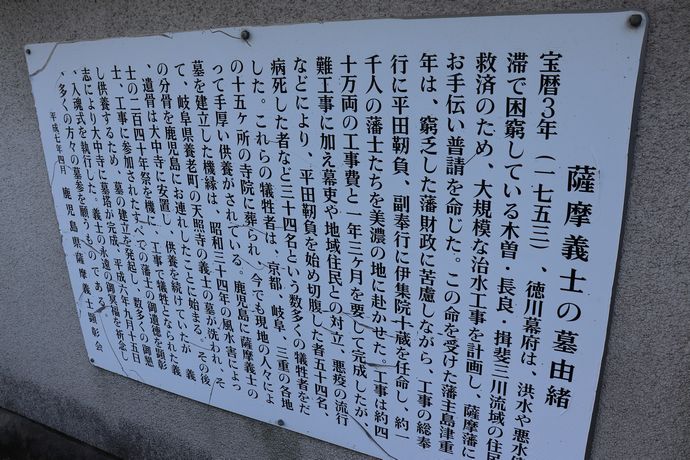 薩摩義士の墓由緒
宝暦3年(一七五三)、徳川幕府は、洪水や悪水停
滞で困窮している木曽・長良・揖斐三川流域の住民
救済のため、大規模な治水工事を計画し、薩摩藩に
お手伝い普請を命じた。この命を受けた藩主島津重
年は、窮乏した藩財政に苦慮しながら、工事の総奉
行に平田靱負、副奉行に伊集院十蔵を任命し、約一
千人の藩士たちを美濃の地に赴かせた。工事は約四
十万両の工事費と一年三ヶ月を要して完成したが、
難工事に加え幕吏や地域住民との対立、悪疫の流行
などにより、平田靱負を始め切腹した者五十四名、
病死した者など三十四名という数多くの犠牲者をだ
した。これらの犠牲者は、京都、岐阜、三重の各地
の十五ヶ所の寺院に葬られ、今でも現地の人々によ
って手厚い供養がされている。鹿児島に薩摩義士の
墓を建立した機縁は、昭和三十四年の風水害によっ
て、岐阜県養老町の天照寺の義士の墓が洗われ、そ
の分骨を鹿児島にお連れしたことに始まる。その後
、遺骨は大中寺に安置し、供養を続けていたが、義
士の二百四十年祭を機に、工事で犠牲となられた義
士、工事に参加されたすべての藩士の御遺徳を顕彰
し供養するため、墓の建立を発起し、数多くの御懇
志により大中寺に墓塔が完成、平成六年九月十五日
、入魂式を執行した。義士の永遠の御冥福を祈念し
、多くの方々の墓参を願うものである。
平成七年四月 鹿児島県薩摩義士顕彰会